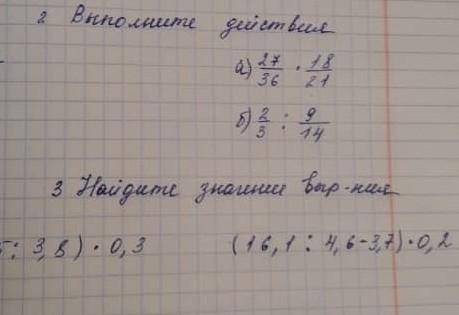 2 Выполните действия
а) 27/36 · 18/21
б) 2/3 : 9/14
3 Найдите значение выр-ния
: 3,8) · 0,3 (16,1 : 4,6-3,7) · 0,2